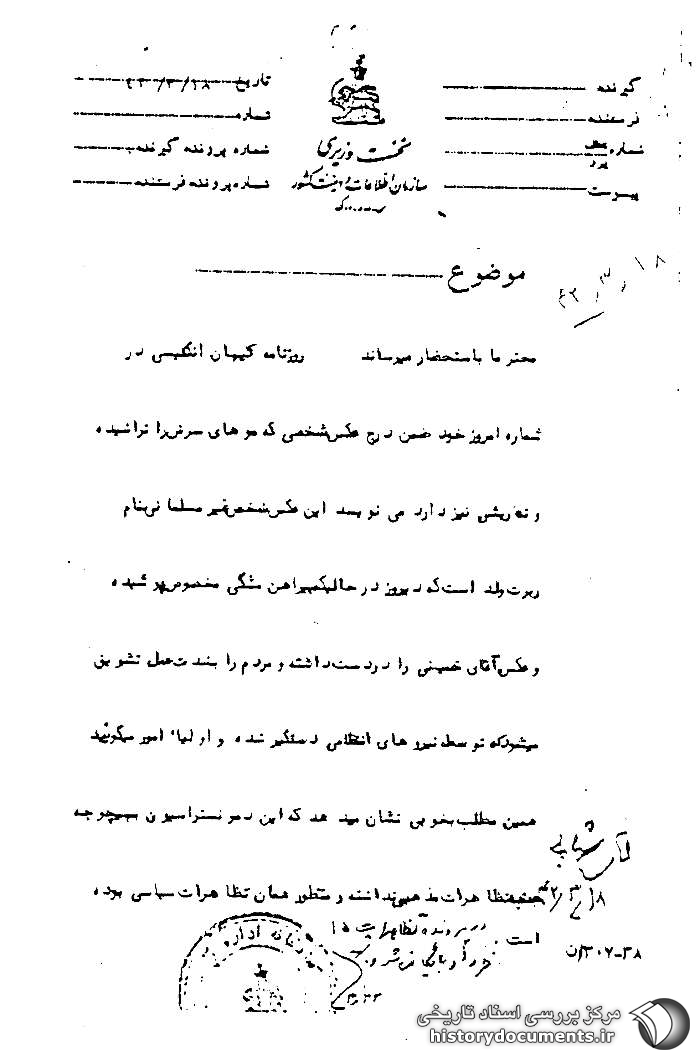 گیرنده
فرستنده
شماره
پیوست
نخست وزیری
سازمان اطلاعات و امنیت کشور
تاریخ ۴۲/۳/۱۸
شماره
شماره پرونده گیرنده
شماره پرونده فرستنده
موضوع
۴۲/۳/۱۸
محترما باستحضار میرساند روزنامه کیهان انگلیسی در
شماره امروز خود ضمن درج عکس شخصی که موهای سرش را تراشیده
و ته ریشی نیز دارد می نویسد این عکس شخص غیر مسلمانی بنام
ربرت ولد است که دیروز در حالیکه پیراهن مشکی مخصوص پوشیده
و عکس آقای خمینی را در دست داشته و مردم را بشدت عمل تشویق
میشود که توسط نیروهای انتظامی دستگیر شده و اولیاء امور میگویند
همین مطلب بخوبی نشان میدهد که این دمونستراسیون بهیچوجه
تظاهرات مذهبی نداشته و منظور همان تظاهرات سیاسی بوده
است.
۱۸/۳/۴۲
در پرونده تظاهرات ۱۵
۳۰۷-۳۸/ن
مرکز بررسی اسناد تاریخی
historydocuments.ir